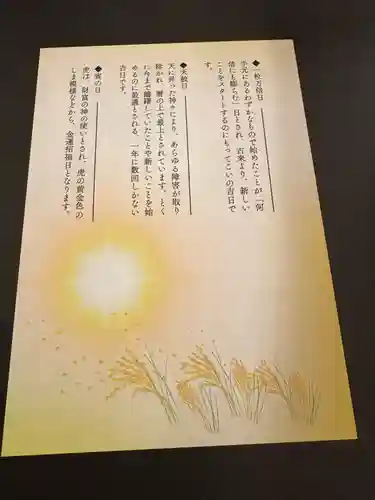 ◆一粒万倍日
手元にあるわずかなもので始めたことが「何
倍にも膨らむ」日とされ、古来より、新しい
ことをスタートするのにもってこいの吉日で
す。
◆天赦日
天に昇った神々により、あらゆる障害が取り
除かれ、暦の上で最上とされています。とく
に今まで躊躇していたことや新しいことを始
めるのに最適とされる、一年に数回しかない
吉日です。
◆寅の日
虎は、財富の神の使いとされ、虎の黄金色の
しま模様などから、金運招福日となります。